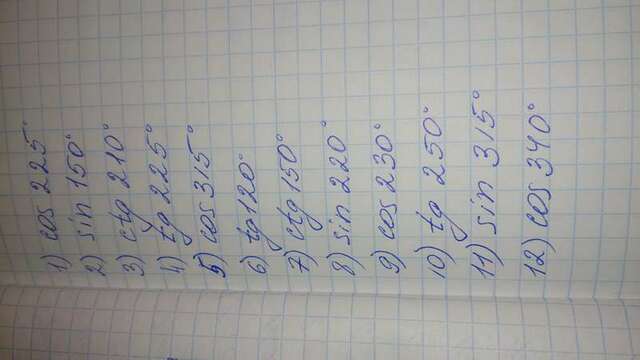 1) cos 225°
2) sin 150°
3) ctg 210°
4) tg 225°
5) cos 315°
6) tg 120°
7) ctg 150°
8) sin 220°
9) cos 230°
10) tg 250°
11) sin 315°
12) cos 340°